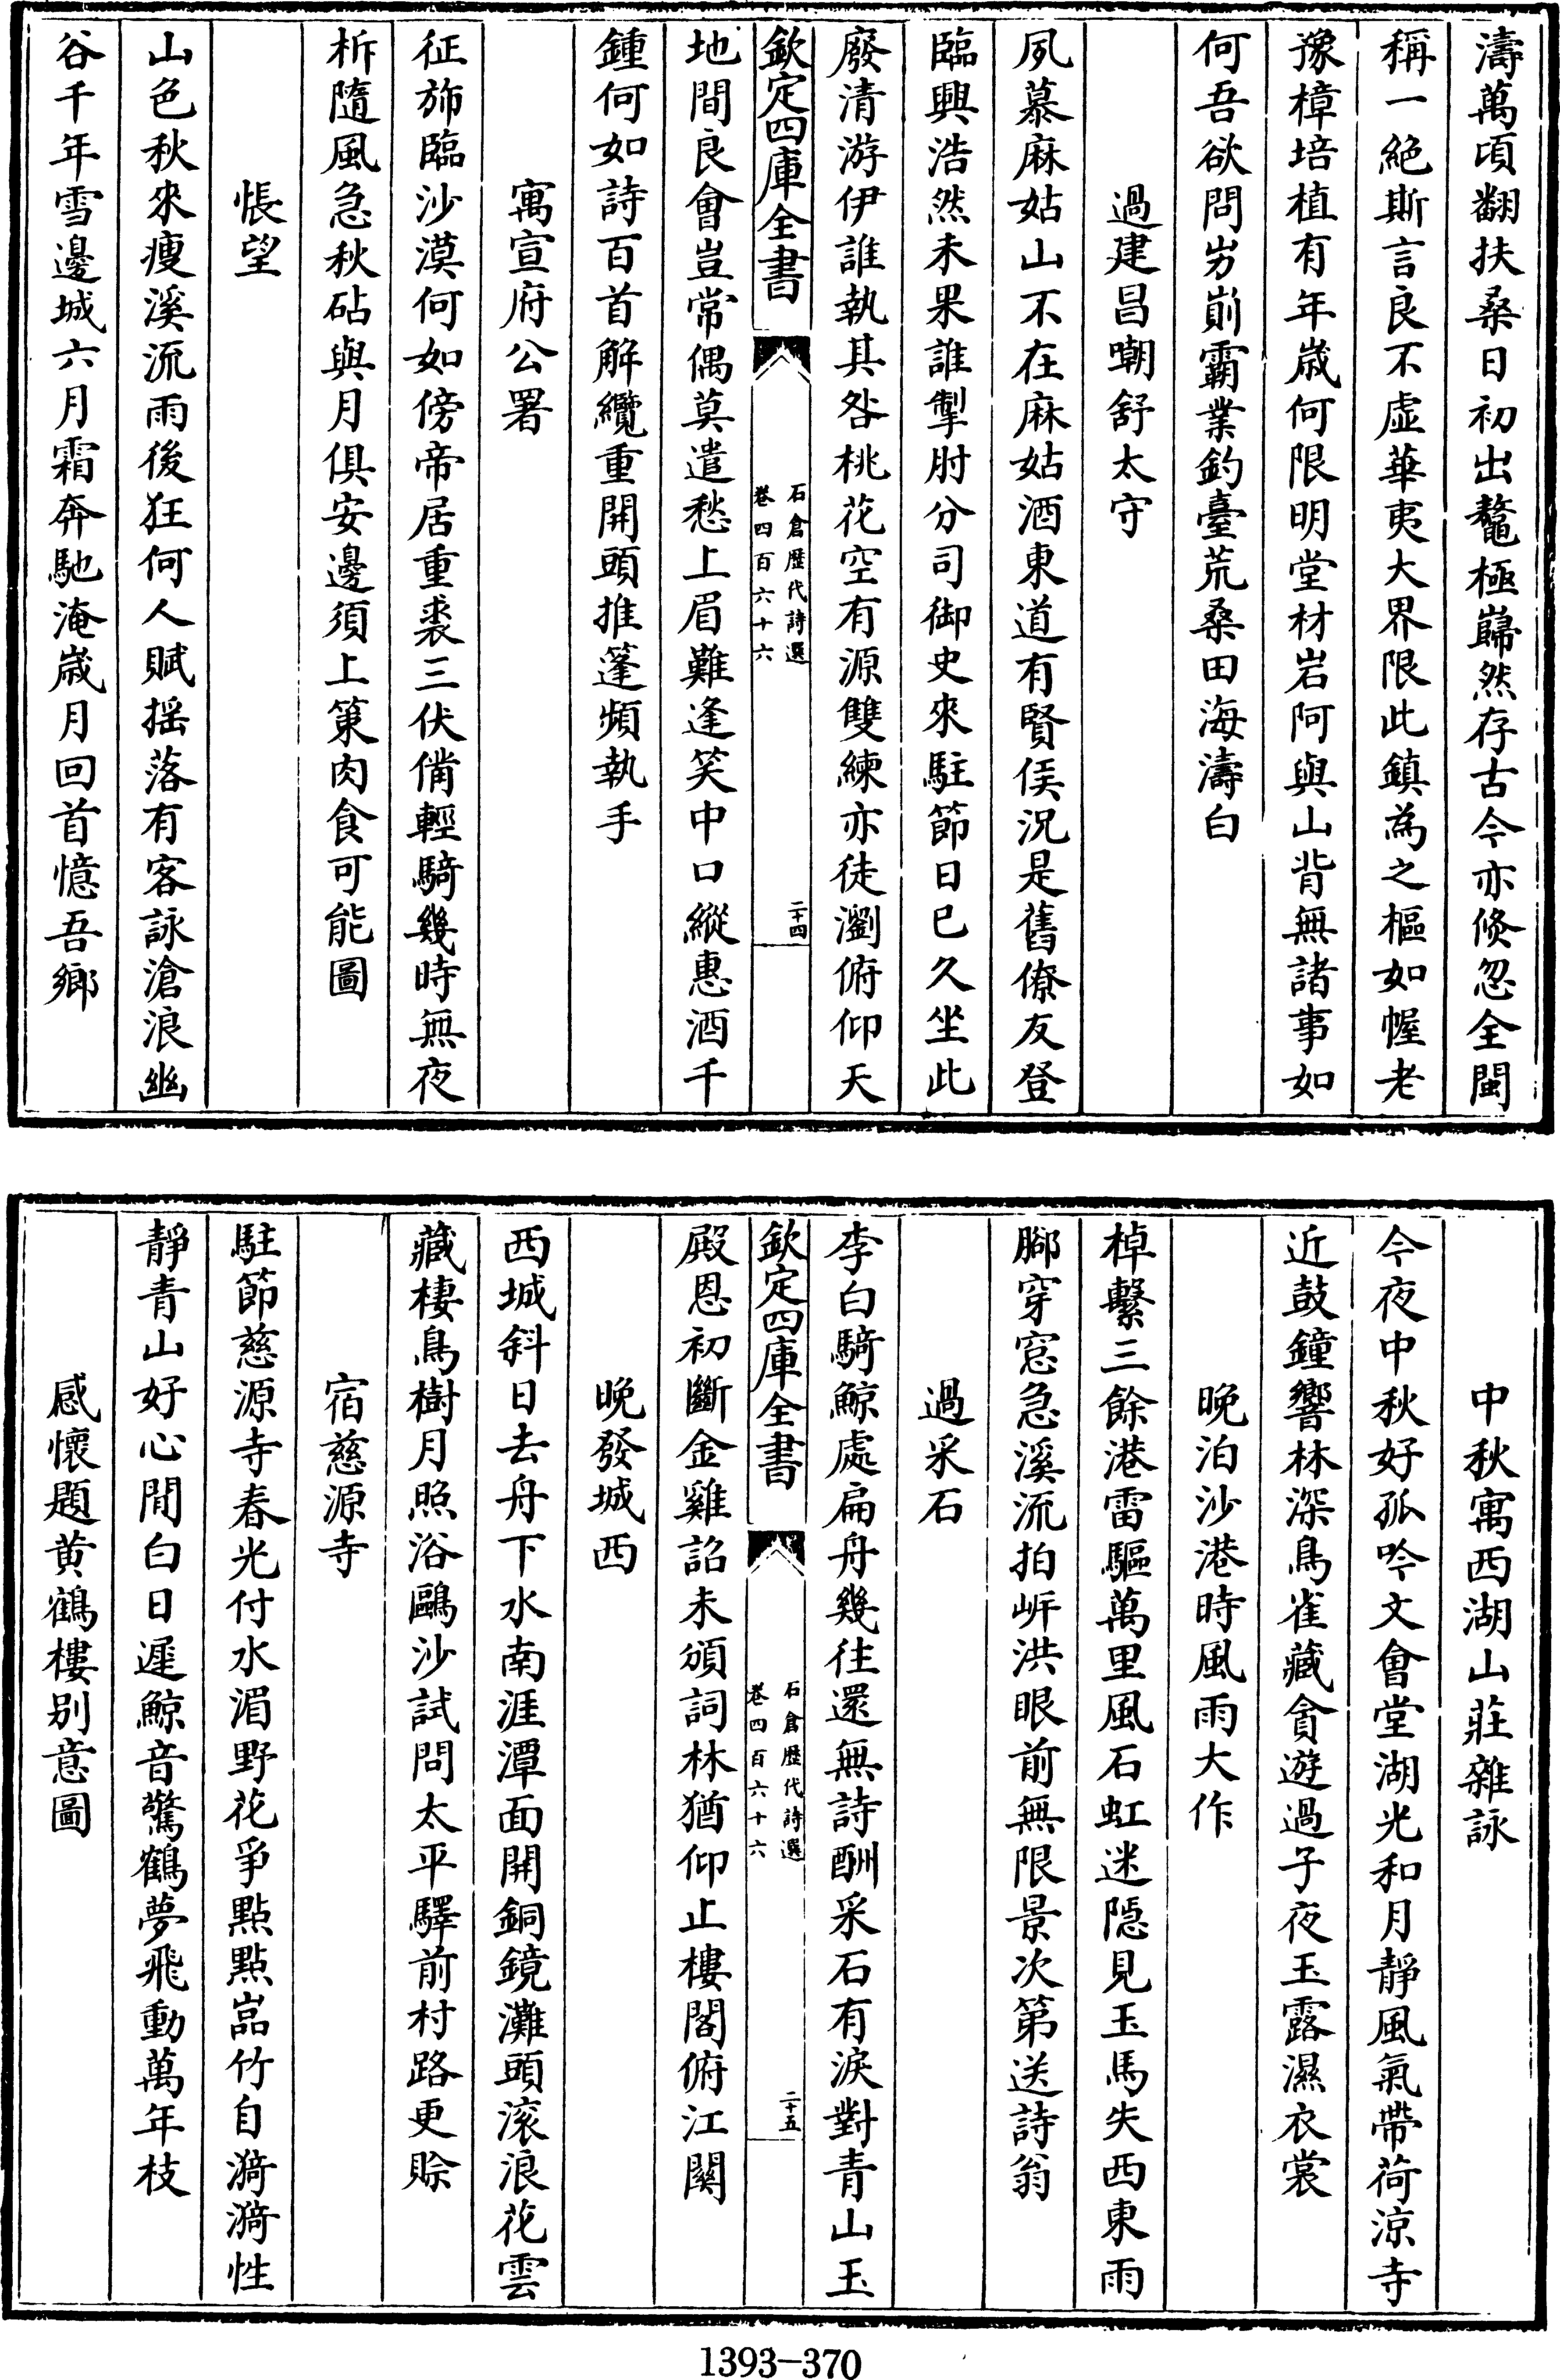 濤萬頃翻扶桑日初出鼇極巋然存古今亦倐忽全閩
稱一絶斯言良不虛華夷大界限此鎮為之樞如幄老
豫樟培植有年歲何限明堂材岩阿與山背無諸事如
何吾欲問屴崱霸業釣臺荒桑田海濤白
過建昌嘲舒太守
夙慕麻姑山不在麻姑酒東道有賢侯況是舊僚友登
臨興浩然未果誰掣肘分司御史來駐節日已久坐此
廢清游伊誰執其咎桃花空有源雙練亦徒瀏俯仰天
欽定四庫全書
石倉歷代詩選
卷四百六十六
二十四
地間良會豈常偶莫遣愁上眉難逢笑中口縱惠酒千
鍾何如詩百首解纜重開頭推篷頻執手
寓宣府公署
征斾臨沙漠何如傍帝居重裘三伏備輕騎幾時無夜
柝隨風急秋砧與月俱安邊須上策肉食可能圖
悵望
山色秋來瘦溪流雨後狂何人賦揺落有客詠滄浪幽
谷千年雪邊城六月霜奔馳淹歲月回首憶吾鄉
中秋寓西湖山莊雜詠
今夜中秋好孤吟文會堂湖光和月靜風氣帶荷涼寺
近鼓鐘響林深鳥雀藏貪遊過子夜玉露濕衣裳
晚泊沙港時風雨大作
棹繫三餘港雷驅萬里風石虹迷隱見玉馬失西東雨
腳穿窓急溪流拍岸洪眼前無限景次第送詩翁
過采石
李白騎鯨處扁舟幾往還無詩酬采石有淚對青山玉
欽定四庫全書
石倉歷代詩選
卷四百六十六
二十五
殿恩初斷金雞詔未頒詞林猶仰止樓閣俯江關
晚發城西
西城斜日去舟下水南涯潭面開銅鏡灘頭滚浪花雲
藏棲鳥樹月照浴鷗沙試問太平驛前村路更賒
宿慈源寺
駐節慈源寺春光付水湄野花爭點點嵓竹自漪漪性
靜青山好心閒白日遲鯨音驚鶴夢飛動萬年枝
感懷題黃鶴樓别意圖
1393-370